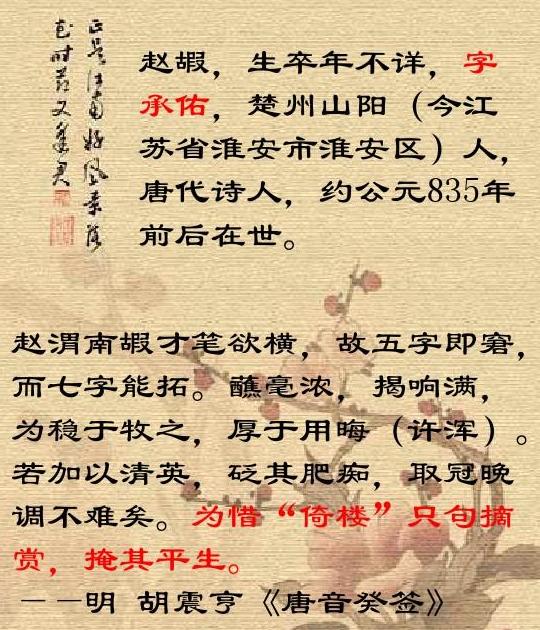 正是江南好风景落
花时节又逢君
赵嘏，生卒年不详，字
承佑，楚州山阳（今江
苏省淮安市淮安区）人，
唐代诗人，约公元835年
前后在世。
赵渭南嘏才笔欲横，故五字即窘，
而七字能拓。蘸毫浓，揭响满，
为稳于牧之，厚于用晦（许浑）。
若加以清英，砭其肥痴，取冠晚
调不难矣。为惜“倚楼”只句摘
赏，掩其平生。
－－明 胡震亨《唐音癸签》